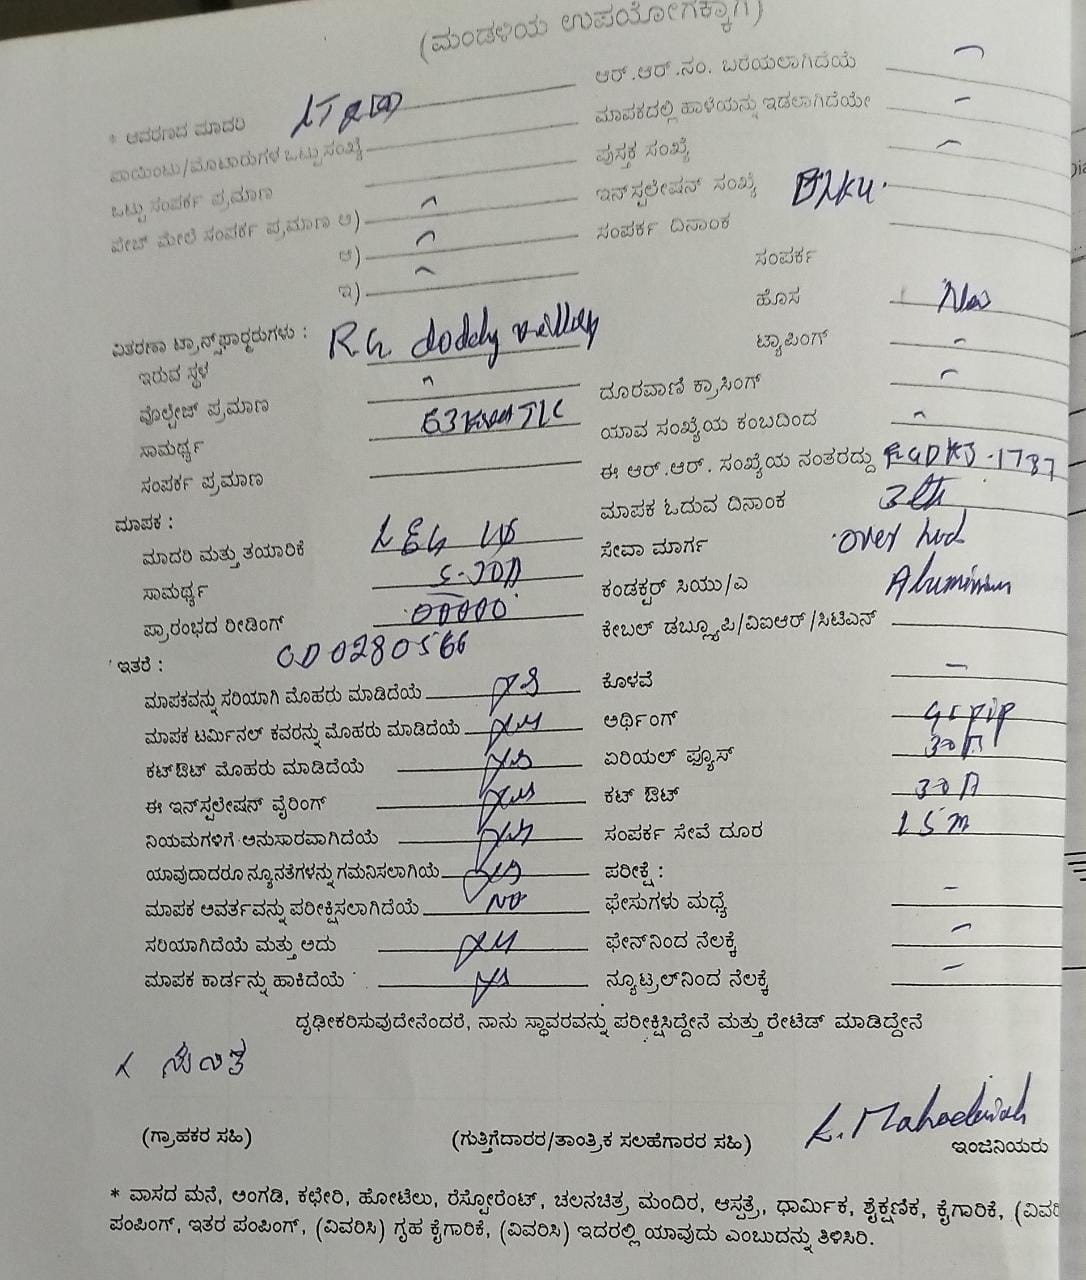 (ಮಂಡಳಿಯ ಉಪಯೋಗಕ್ಕಾಗಿ)
* ಆವರಣದ ಮಾದರಿ
ಪಾಯಿಂಟು/ಮೋಟಾರುಗಳ ಒಟ್ಟು ಸಂಖ್ಯೆ
ಒಟ್ಟು ಸಂಪರ್ಕ ಪ್ರಮಾಣ
ಪೇಜ್ ಮೇಲೆ ಸಂಪರ್ಕ ಪ್ರಮಾಣ ಅ)
ಆ)
ಇ)
ವಿತರಣಾ ಟ್ರಾನ್ಸ್‌ಫಾರ್ಮರುಗಳು : R.G. doddy
ಇರುವ ಸ್ಥಳ
ವೊಲ್ಟೇಜ್ ಪ್ರಮಾಣ
ಸಾಮರ್ಥ್ಯ 63
ಸಂಪರ್ಕ ಪ್ರಮಾಣ
ಮಾಪಕ :
ಮಾದರಿ ಮತ್ತು ತಯಾರಿಕೆ
ಸಾಮರ್ಥ್ಯ
ಪ್ರಾರಂಭದ ರೀಡಿಂಗ್ 00000
ಇತರೆ : 0D0280566
ಮಾಪಕವನ್ನು ಸರಿಯಾಗಿ ಮೊಹರು ಮಾಡಿದೆಯೆ yes
ಮಾಪಕ ಟರ್ಮಿನಲ್ ಕವರನ್ನು ಮೊಹರು ಮಾಡಿದೆಯೆ yes
ಕಟ್‌ಔಟ್ ಮೊಹರು ಮಾಡಿದೆಯೆ yes
ಈ ಇನ್‌ಸ್ಟಲೇಷನ್ ವೈರಿಂಗ್ yes
ನಿಯಮಗಳಿಗೆ ಅನುಸಾರವಾಗಿದೆಯೆ yes
ಯಾವುದಾದರೂ ನ್ಯೂನತೆಗಳನ್ನು ಗಮನಿಸಲಾಗಿಯೆ yes
ಮಾಪಕ ಆವರ್ತವನ್ನು ಪರೀಕ್ಷಿಸಲಾಗಿದೆಯೆ No
ಸರಿಯಾಗಿದೆಯೆ ಮತ್ತು ಅದು yes
ಮಾಪಕ ಕಾರ್ಡನ್ನು ಹಾಕಿದೆಯೆ yes
ಆರ್.ಆರ್.ನಂ. ಬರೆಯಲಾಗಿದೆಯೆ
ಮಾಪಕದಲ್ಲಿ ಹಾಳೆಯನ್ನು ಇಡಲಾಗಿದೆಯೇ
ಪುಸ್ತಕ ಸಂಖ್ಯೆ
ಇನ್‌ಸ್ಟಲೇಷನ್ ಸಂಖ್ಯೆ
ಸಂಪರ್ಕ ದಿನಾಂಕ
ಸಂಪರ್ಕ
ಹೊಸ New
ಟ್ಯಾಪಿಂಗ್
ದೂರವಾಣಿ ಕ್ರಾಸಿಂಗ್
ಯಾವ ಸಂಖ್ಯೆಯ ಕಂಬದಿಂದ
ಈ ಆರ್.ಆರ್. ಸಂಖ್ಯೆಯ ನಂತರದ್ದು RGDKJ-1787
ಮಾಪಕ ಓದುವ ದಿನಾಂಕ 3th
ಸೇವಾ ಮಾರ್ಗ over hed
ಕಂಡಕ್ಟರ್ ಸಿಯು/ಎ Aluminium
ಕೇಬಲ್ ಡಬ್ಲ್ಯೂಪಿ/ವಿಐಆರ್/ಸಿಟಿಎಸ್
ಕೊಳವೆ
ಅರ್ಥಿಂಗ್ GI pip
ಏರಿಯಲ್ ಫ್ಯೂಸ್ 30A
ಕಟ್ ಔಟ್ 30A
ಸಂಪರ್ಕ ಸೇವೆ ದೂರ 15m
ಪರೀಕ್ಷೆ :
ಫೇಸುಗಳು ಮಧ್ಯೆ
ಫೇಸ್‌ನಿಂದ ನೆಲಕ್ಕೆ
ನ್ಯೂಟ್ರಲ್‌ನಿಂದ ನೆಲಕ್ಕೆ
ದೃಢೀಕರಿಸುವುದೇನೆಂದರೆ, ನಾನು ಸ್ಥಾವರವನ್ನು ಪರೀಕ್ಷಿಸಿದ್ದೇನೆ ಮತ್ತು ರೇಟೆಡ್ ಮಾಡಿದ್ದೇನೆ
(ಗ್ರಾಹಕರ ಸಹಿ)
(ಗುತ್ತಿಗೆದಾರರ/ತಾಂತ್ರಿಕ ಸಲಹೆಗಾರರ ಸಹಿ)
ಇಂಜಿನಿಯರು
* ವಾಸದ ಮನೆ, ಅಂಗಡಿ, ಕಛೇರಿ, ಹೋಟೆಲು, ರೆಸ್ಟೋರೆಂಟ್, ಚಲನಚಿತ್ರ ಮಂದಿರ, ಆಸ್ಪತ್ರೆ, ಧಾರ್ಮಿಕ, ಶೈಕ್ಷಣಿಕ, ಕೈಗಾರಿಕೆ,
ಪಂಪಿಂಗ್, ಇತರ ಪಂಪಿಂಗ್, (ವಿವರಿಸಿ) ಗೃಹ ಕೈಗಾರಿಕೆ, (ವಿವರಿಸಿ) ಇದರಲ್ಲಿ ಯಾವುದು ಎಂಬುದನ್ನು ತಿಳಿಸಿರಿ.